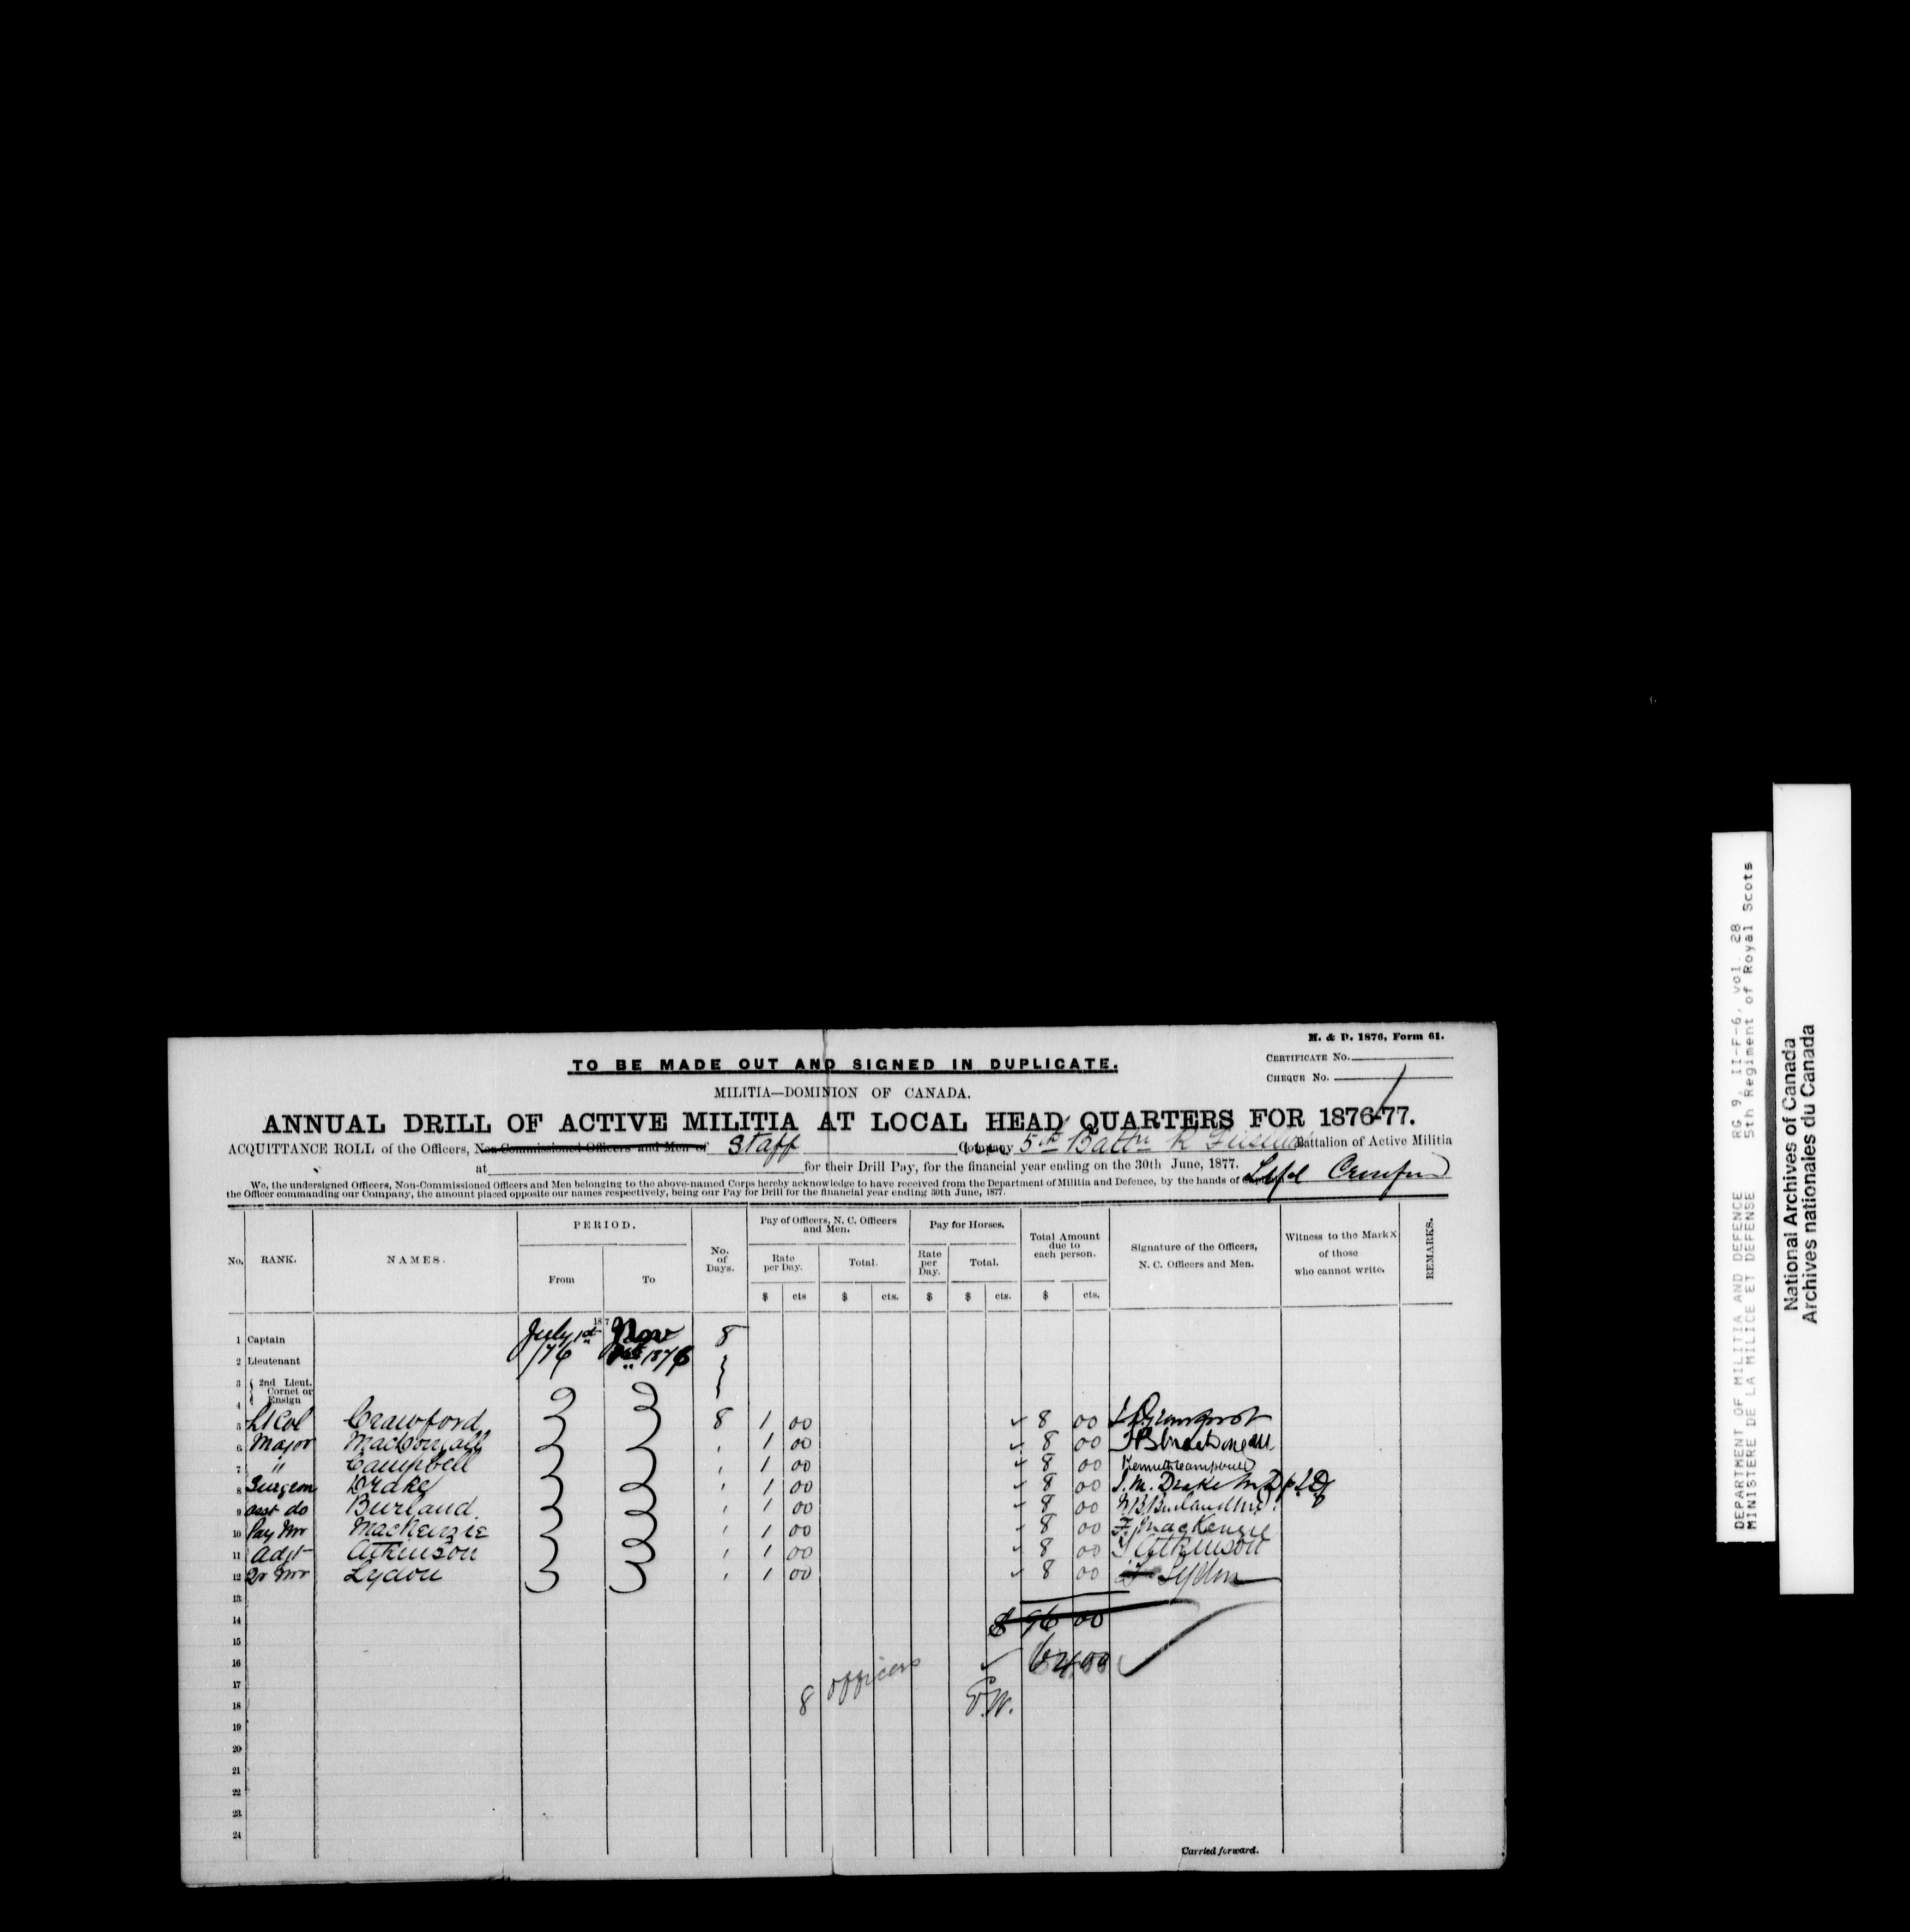 M. & D. 1876, Form 61.
TO BE MADE OUT AND SIGNED IN DUPLICATE.
CERTIFICATE No.
CHEQUE No.
MILITIA—DOMINION OF CANADA.
ANNUAL DRILL OF ACTIVE MILITIA AT LOCAL HEAD QUARTERS FOR 1876-77.
ACQUITTANCE ROLL of the Officers, Non-Commissioned Officers and Men of Staff Company 5th Battn R Battalion of Active Militia
at for their Drill Pay, for the financial year ending on the 30th June, 1877.
We, the undersigned Officers, Non-Commissioned Officers and Men belonging to the above-named Corps hereby acknowledge to have received from the Department of Militia and Defence, by the hands of
the Officer commanding our Company, the amount placed opposite our names respectively, being our Pay for Drill for the financial year ending 30th June, 1877.
No. RANK. NAMES. PERIOD. From To No. of Days. Pay of Officers, N. C. Officers and Men. Rate per Day. $ cts Total. $ cts. Pay for Horses. Rate per Day. $ Total. $ cts. Total Amount due to each person. $ cts. Signature of the Officers, N. C. Officers and Men. Witness to the Mark X of those who cannot write. REMARKS.
1 Captain July 1st /76 Nov 1876 8
2 Lieutenant
3 2nd Lieut.
Cornet or
4 Ensign
5 Lt Col Crawford 8 1 00 8 00
6 Major MacDougall 1 00 8 00
7 " Campbell 1 00 8 00 Kenneth Campbell
8 Surgeon Drake 1 00 8 00 J. M. Drake M.D.
9 asst do Burland 1 00 8 00
10 Pay Mr MacKenzie 1 00 8 00 F. MacKenzie
11 Adjt Atkinson 1 00 8 00 Atkinson
12 Qr Mr Lydon 1 00 8 00 Lydon
13
14 $ 96 00
15
16 64 00
17 8 officers
18
19
20
21
22
23
24
Carried forward.
DEPARTMENT OF MILITIA AND DEFENCE RG 9, II-F-6, vol. 28
MINISTERE DE LA MILICE ET DEFENSE 5th Regiment of Royal Scots
National Archives of Canada
Archives nationales du Canada